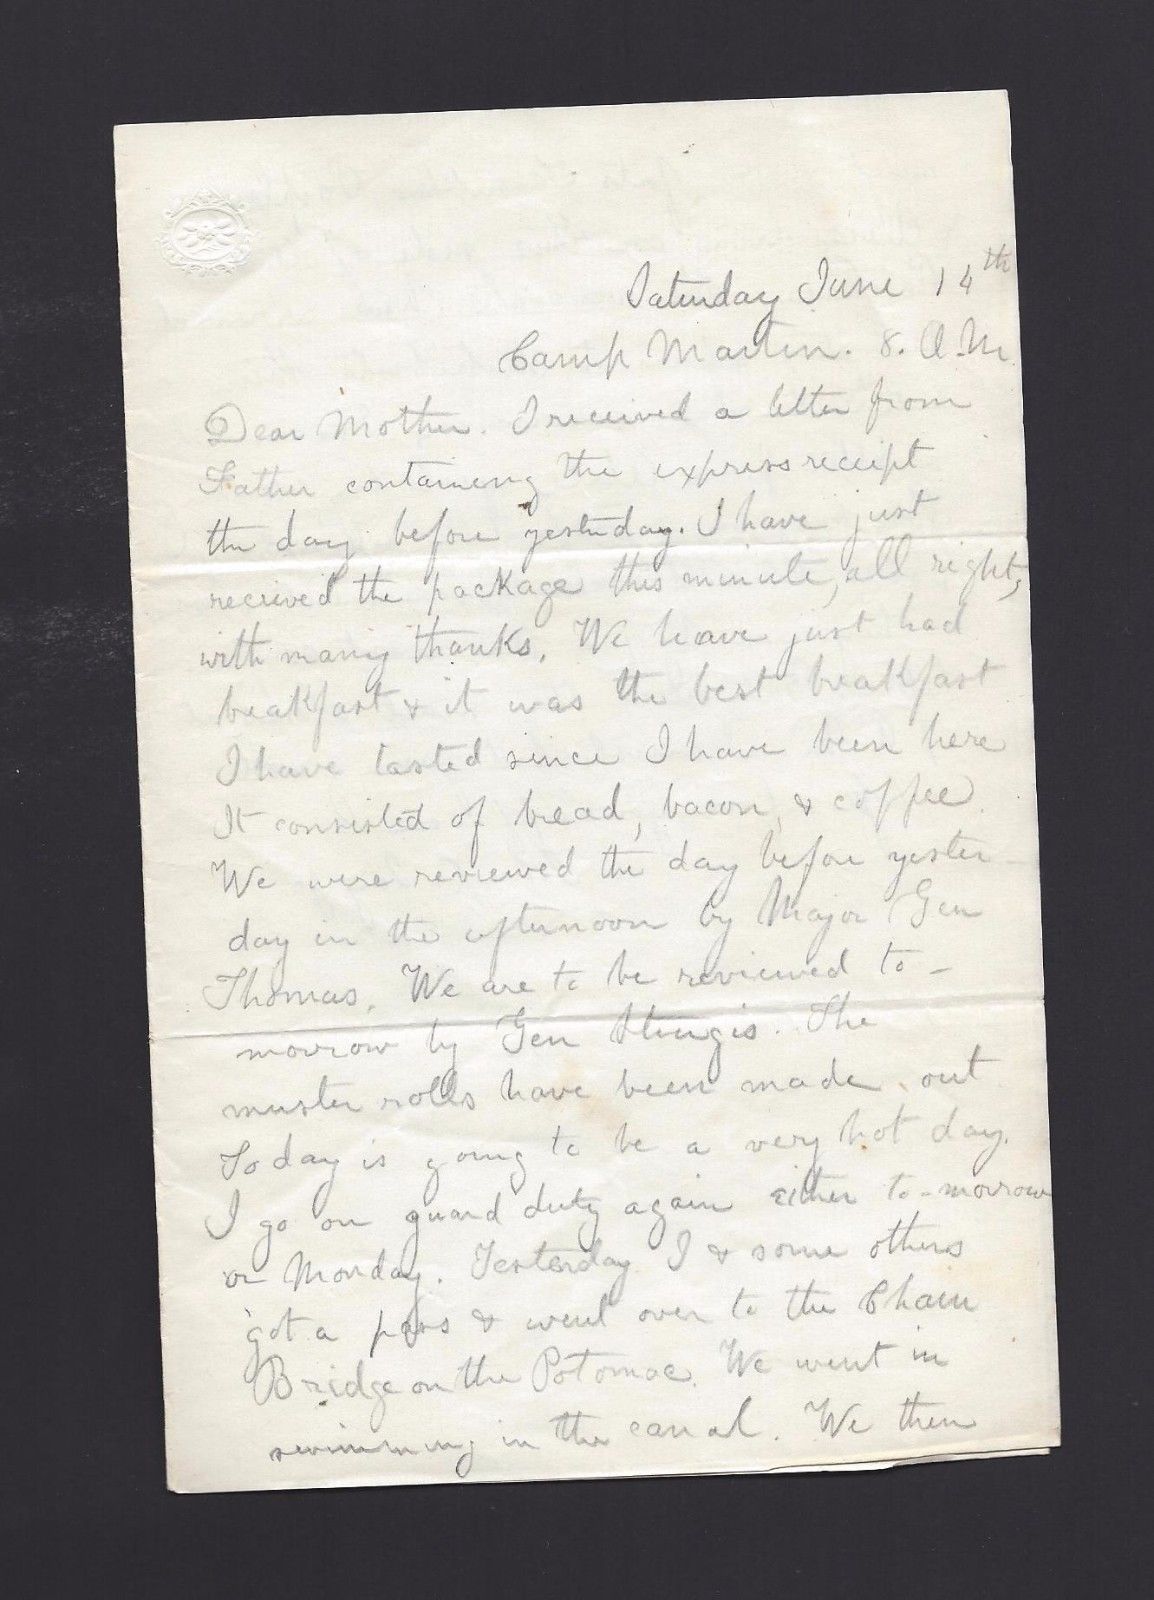 Saturday June 14th
Camp Martin. 8. A.M
Dear Mother. I received a letter from
Father containing the express receipt
the day before yesterday. I have just
recieved the package this minute, all right,
with many thanks. We have just had
breakfast & it was the best breakfast
I have tasted since I have been here
It consisted of bread, bacon, & coffee.
We were reviewed the day before yester-
day in the afternoon by Major Gen
Thomas. We are to be reviewed to-
morrow by Gen Sturgis. The
muster rolls have been made out
To day is going to be a very hot day.
I go on guard duty again either to-morrow
or Monday. Yesterday I & some others
got a pass & went over to the Chain
Bridge on the Potomac. We went in
swimming in the canal. We then